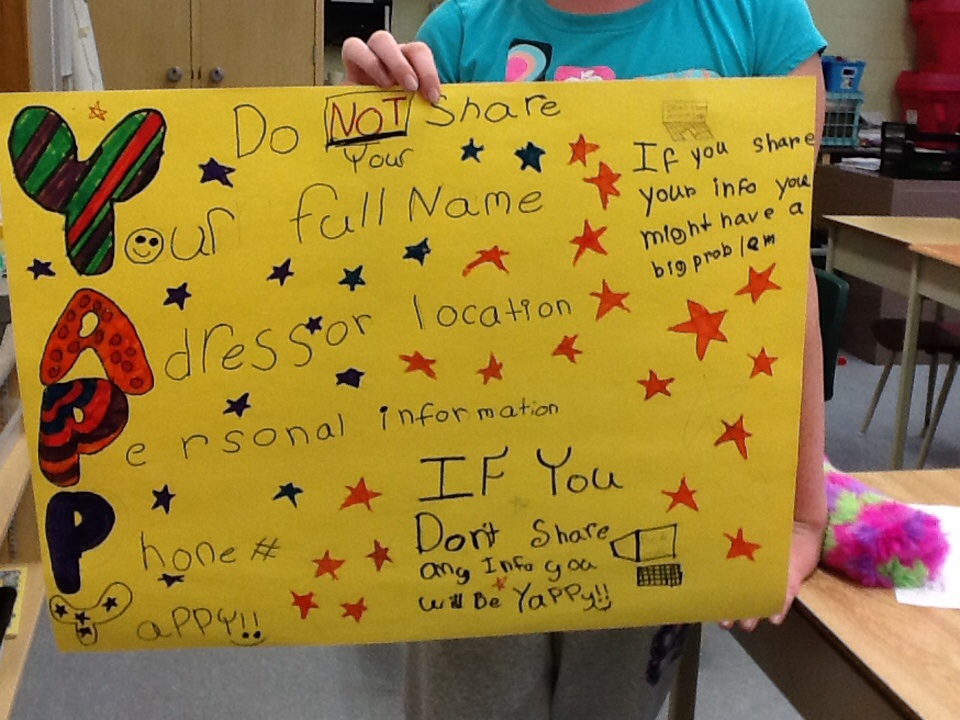 Do NOT Share
Your
Your full Name
Adressor location
Personal information
Phone #
YAPPY!!
If you share
your info you
might have a
big problem
IF You
Don't Share
any Info you
will Be YaPPy!!